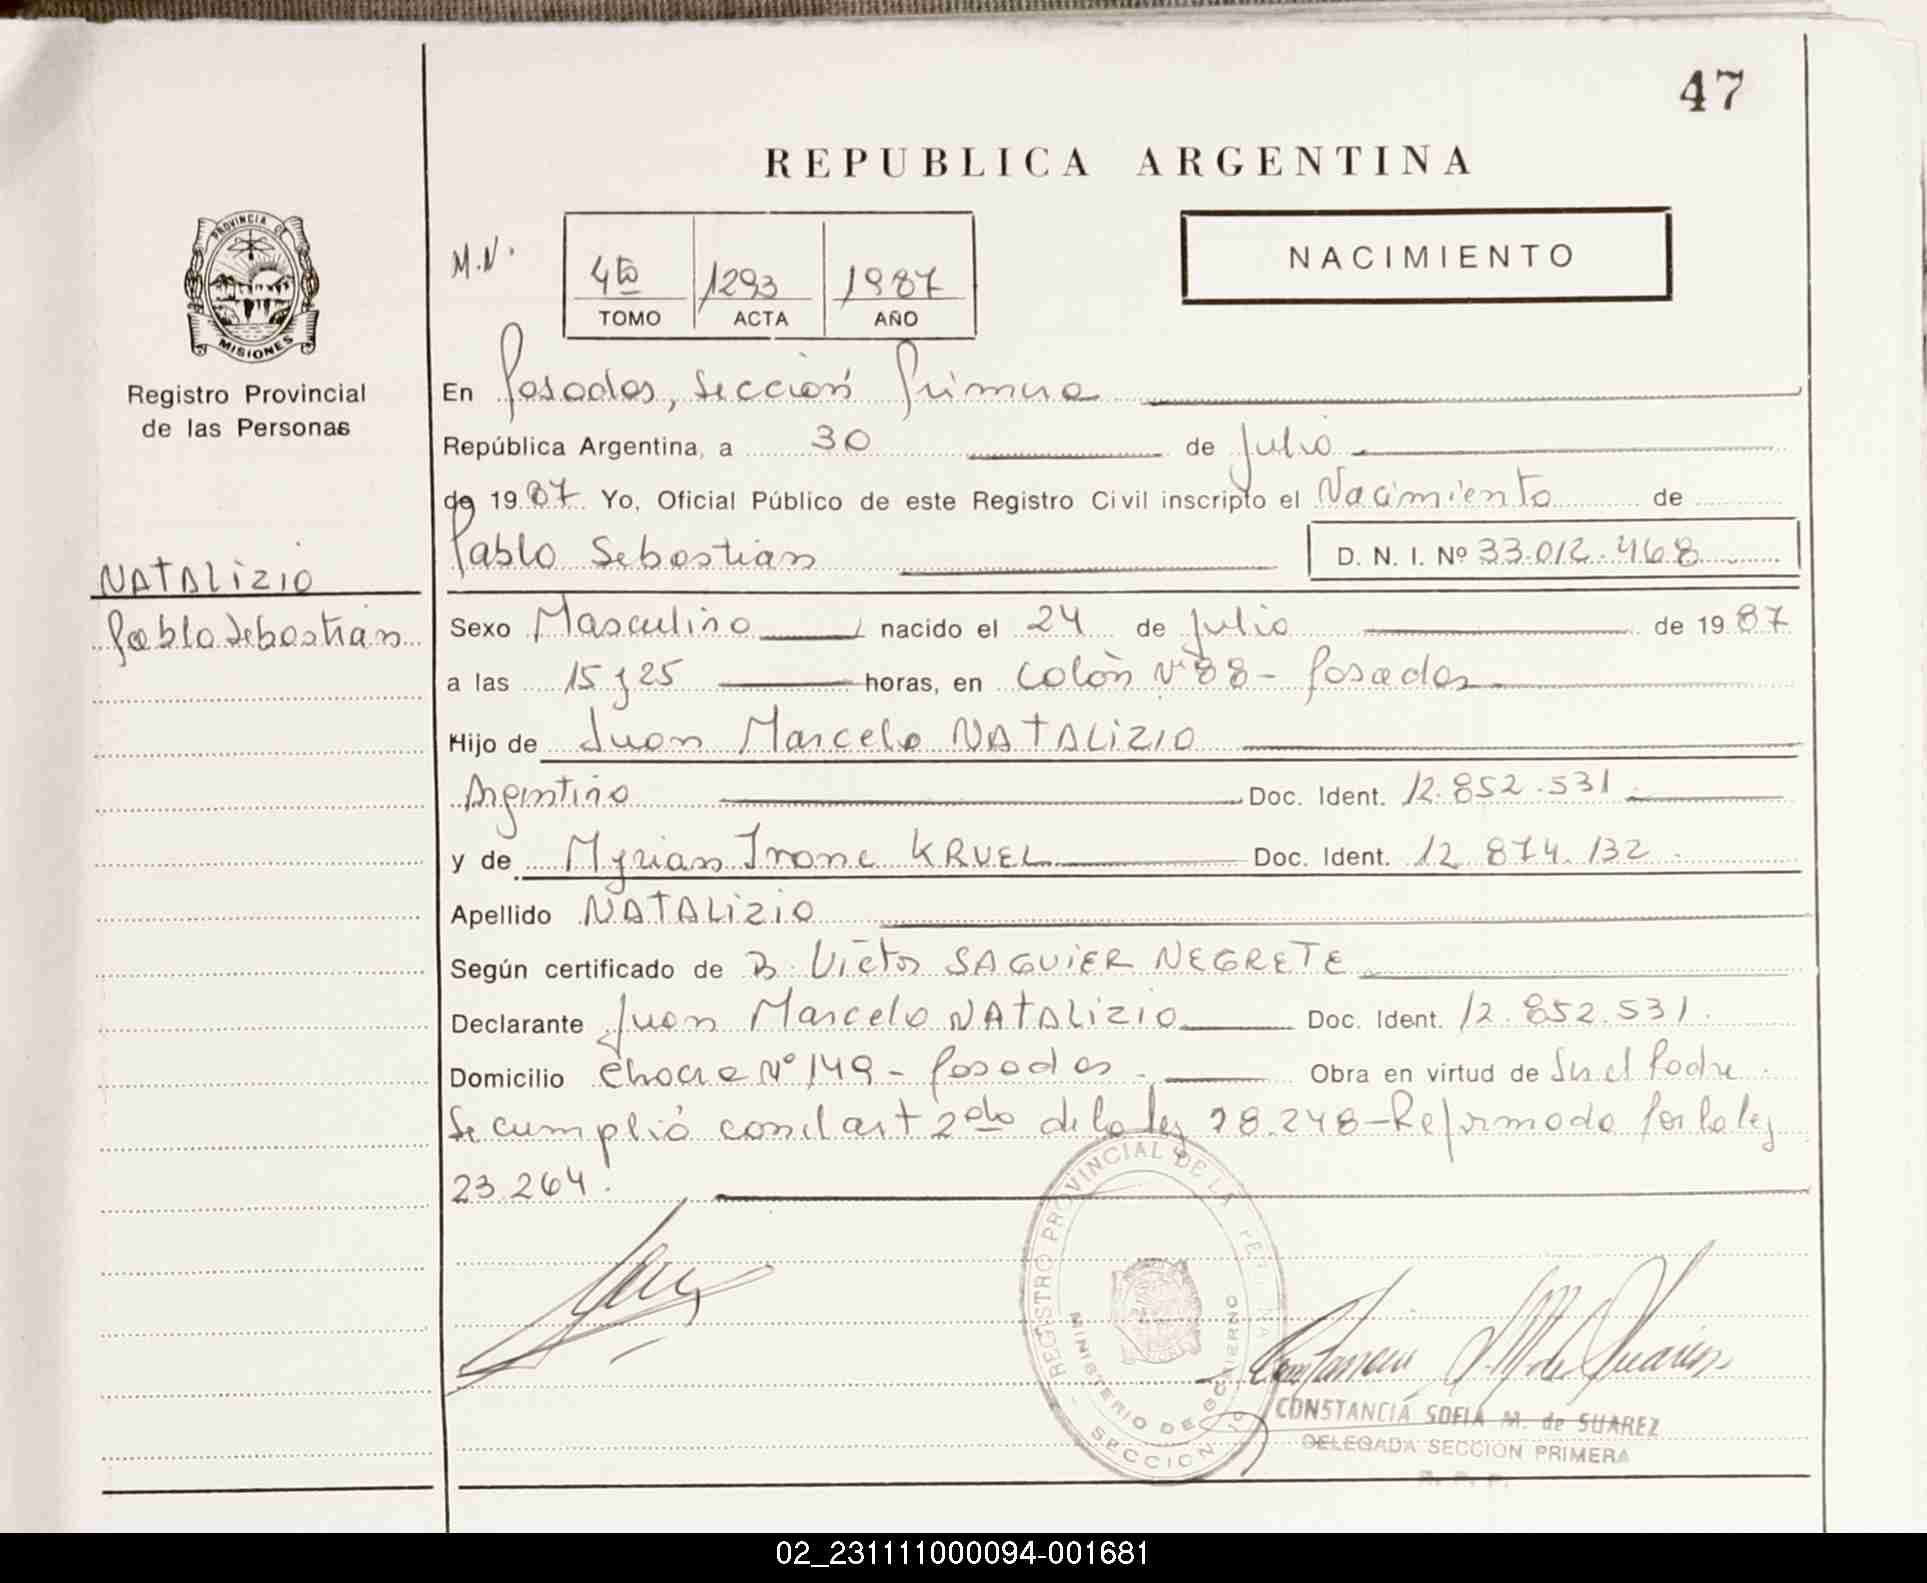 47
REPUBLICA ARGENTINA
PROVINCIA DE
MISIONES
Registro Provincial
de las Personas
M.N.
4to 1293 1987
TOMO ACTA AÑO
NACIMIENTO
En Posadas, Sección Primera
República Argentina, a 30 de Julio
de 1987 Yo, Oficial Público de este Registro Civil inscripto el Nacimiento de
Pablo Sebastian D. N. I. Nº 33.012.468
NATALIZIO
Pablo Sebastian
Sexo Masculino nacido el 24 de Julio de 1987
a las 15 y 25 horas, en Colòn Nº 88 - Posadas
Hijo de Juan Marcelo NATALIZIO
Argentino Doc. Ident. 12.852.531
y de Myrian Ivone KRUEL Doc. Ident. 12 874.132
Apellido NATALIZIO
Según certificado de Victor SAGUIER NEGRETE
Declarante Juan Marcelo NATALIZIO Doc. Ident. 12.852.531.
Domicilio Nº 149 - Posadas. Obra en virtud de Ser el Padre.
Se cumplió con el art 2do de la ley 18.248 - Reformado por la ley
23.264.
REGISTRO PROVINCIAL DE LAS PERSONAS
MINISTERIO DE GOBIERNO
SECCION 1a
Constancia S. M. de Suarez
CONSTANCIA SOFIA M. de SUAREZ
DELEGADA SECCION PRIMERA
R. P. P.
02_231111000094-001681